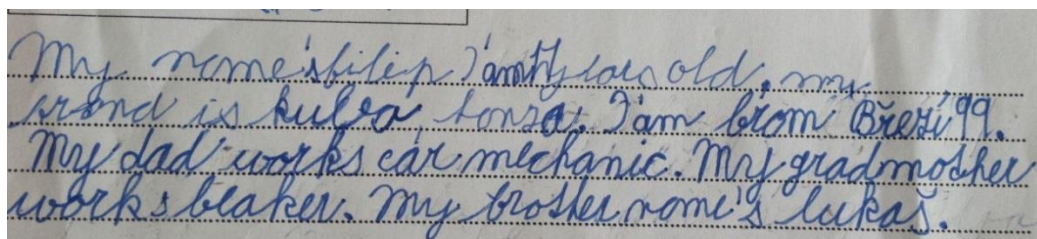 My name's filip I'am 11 years old, my
friend is kuba honza. I'am from Březí 99.
My dad works car mechanic. My gradmother
works beaker. My brother name's lukaš.